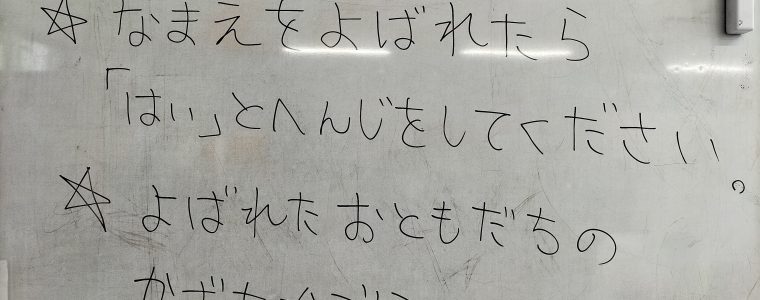 ☆ なまえをよばれたら
「はい」とへんじをしてください。
☆ よばれたおともだちの